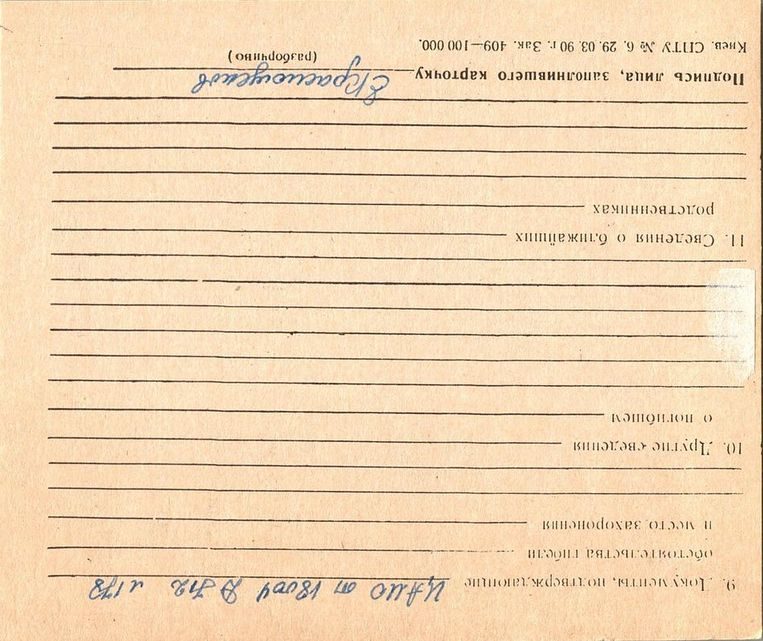 9. Документы, подтверждающие ЦАМО оп 18004 Д 312 л 178
обстоятельства гибели
и место захоронения
10. Другие сведения
о погибшем
11. Сведения о ближайших
родственниках
Подпись лица, заполнившего карточку
(разборчиво)
Киев. СПТУ № 6. 29. 03. 90 г. Зак. 409—100 000.